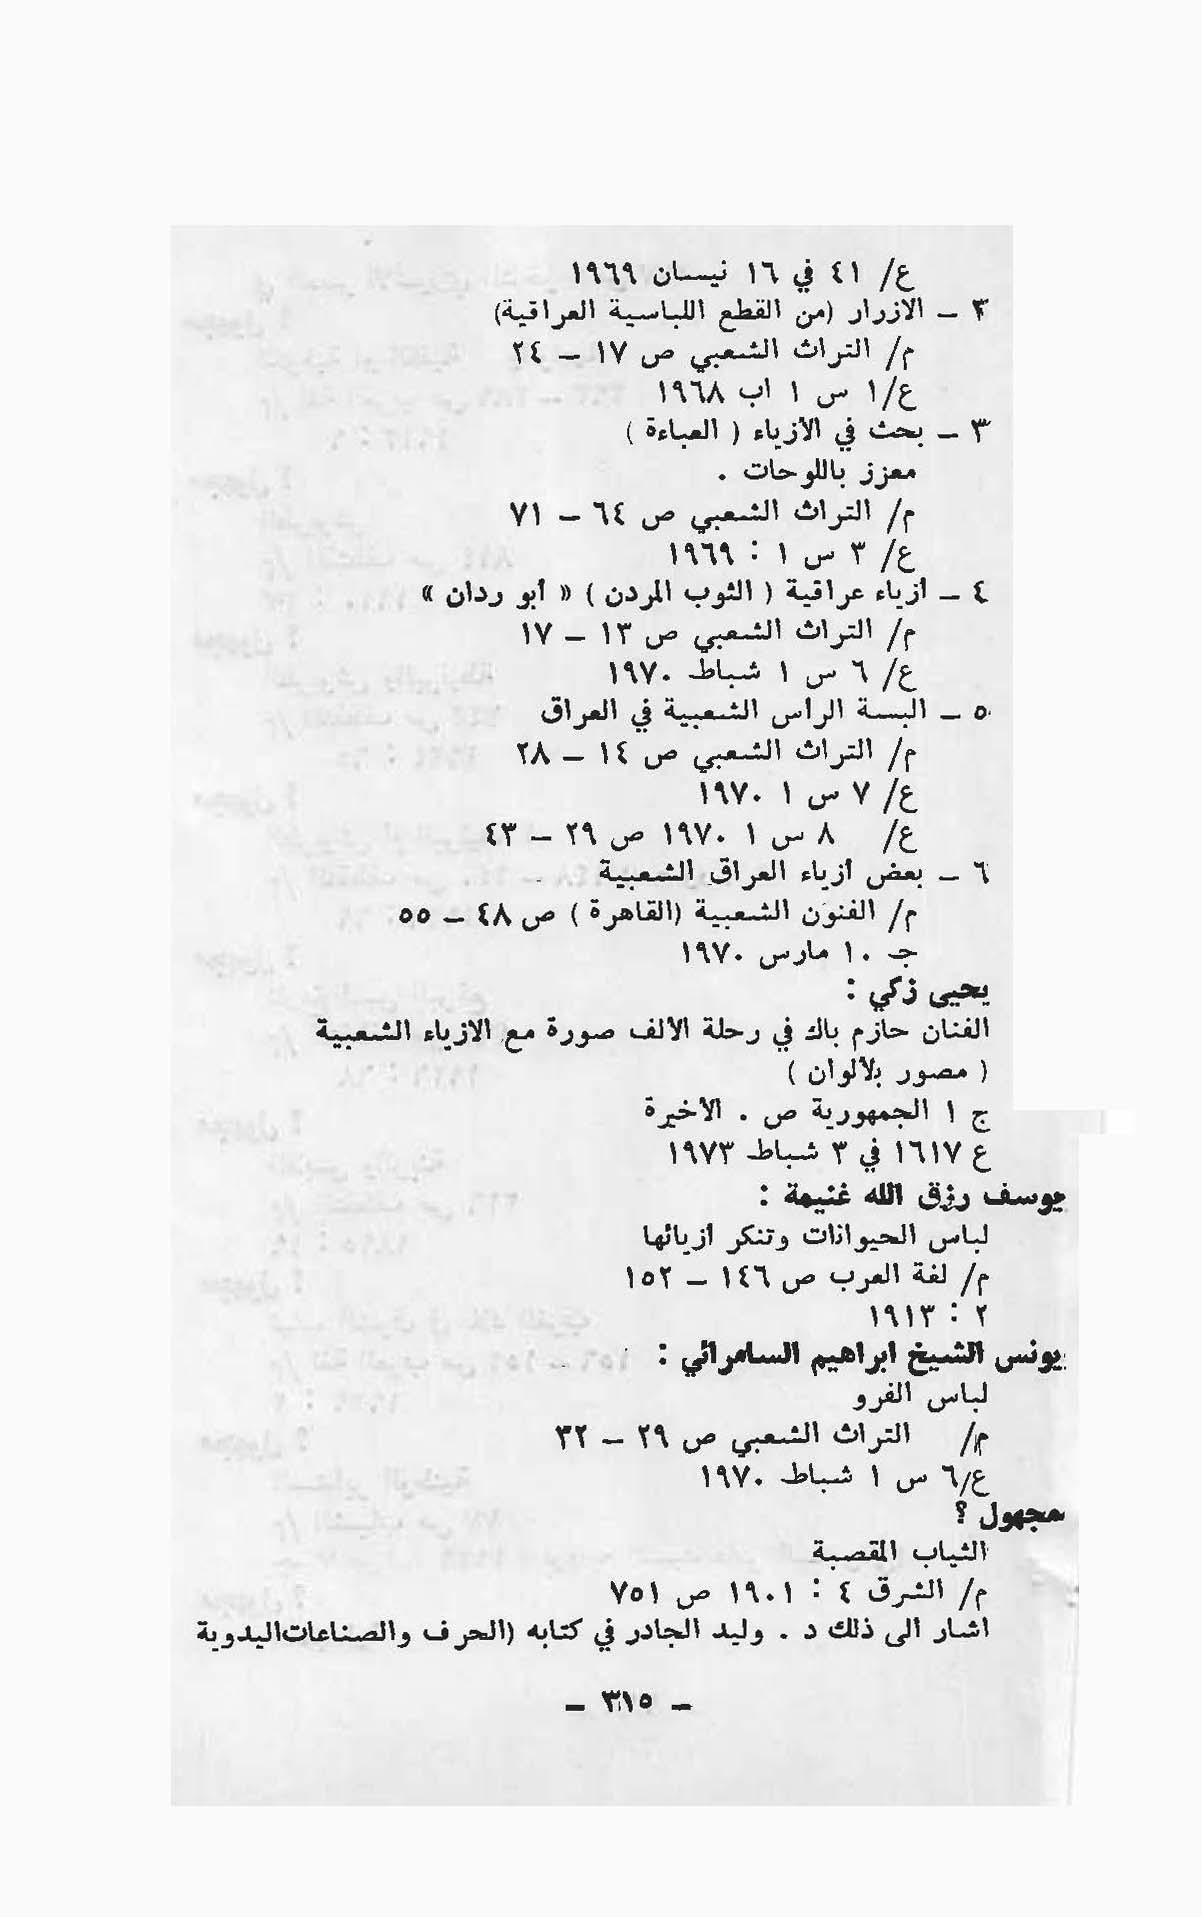 ع/ ٤١ في ١٦ نيسان ١٩٦٩
٣ - الازرار (من القطع اللباسية العراقية)
م/ التراث الشعبي ص ١٧ - ٢٤
ع/١ س ١ اب ١٩٦٨
٣ - بحث في الأزياء ( العباءة )
معزز باللوحات .
م/ التراث الشعبي ص ٦٤ - ٧١
ع/ ٣ س ١ : ١٩٦٩
٤ - ازياء عراقية ( الثوب المردن ) « أبو ردان »
م/ التراث الشعبي ص ١٣ - ١٧
ع/ ٦ س ١ شباط ١٩٧٠
٥ - البسة الرأس الشعبية في العراق
م/ التراث الشعبي ص ١٤ - ٢٨
ع/ ٧ س ١ ١٩٧٠
ع/ ٨ س ١ ١٩٧٠ ص ٢٩ - ٤٣
٦ - بعض أزياء العراق الشعبية
م/ الفنون الشعبية (القاهرة ) ص ٤٨ - ٥٥
جـ ١٠ مارس ١٩٧٠
يحيى زكي :
الفنان حازم باك في رحلة الألف صورة مع الازياء الشعبية
( مصور بلألوان )
ج ١ الجمهورية ص . الأخيرة
ع ١٦١٧ في ٣ شباط ١٩٧٣
يوسف رزق الله غنيمة :
لباس الحيوانات وتنكر ازيائها
م/ لغة العرب ص ١٤٦ - ١٥٢
٢ : ١٩١٣
يونس الشيخ ابراهيم السامرائي :
لباس الفرو
م/ التراث الشعبي ص ٢٩ - ٣٢
ع/٦ س ١ شباط ١٩٧٠
مجهول ؟
الثياب المقصبة
م/ الشرق ٤ : ١٩٠١ ص ٧٥١
اشار الى ذلك د . وليد الجادر في كتابه (الحرف والصناعات اليدوية
- ٣١٥ -